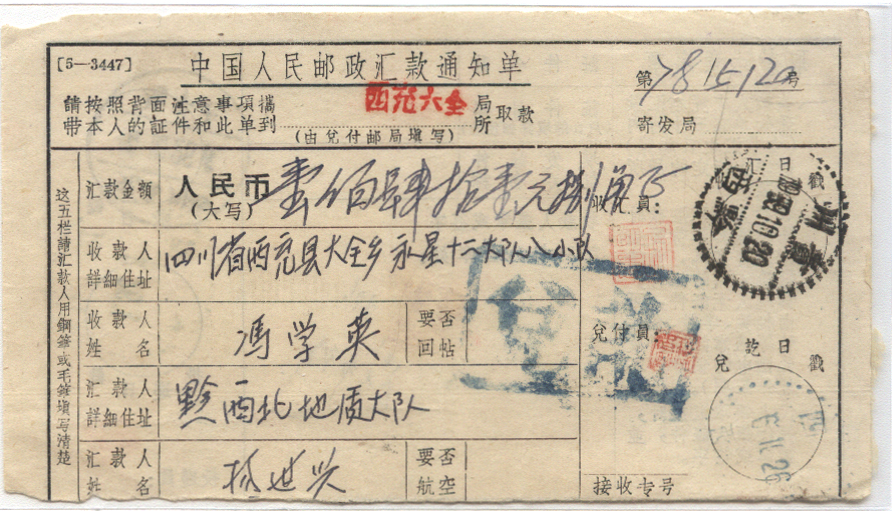 [5—3447]
中国人民邮政汇款通知单
第781512a号
請按照背面注意事項攜
带本人的証件和此单到
西充大全
局
所
取款
(由兌付邮局填写)
寄发局
这五栏請汇款人用鋼筆或毛筆填写清楚
汇款金額
人民币
(大写)
壹佰肆拾壹元捌角正
收汇員:
汇日戳
收款人
詳細住址
四川省西充县大全乡永星十二大队八小队
收款人
姓名
冯学英
要否
回帖
兌付員:
兌訖日戳
汇款人
詳細住址
黔西北地质大队
汇款人
姓名
杨世兴
要否
航空
接收专号